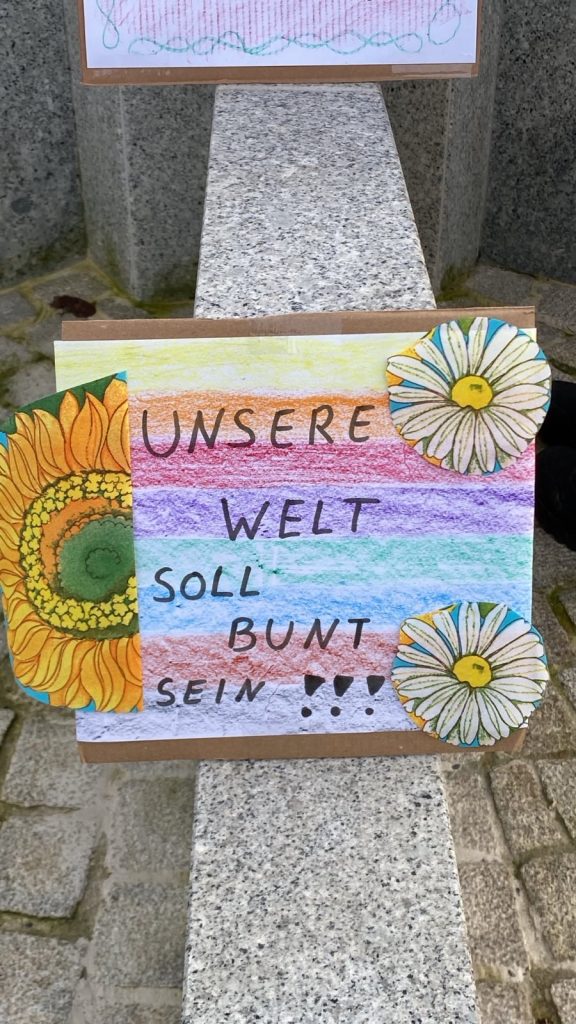 UNSERE
WELT
SOLL
BUNT
SEIN !!!